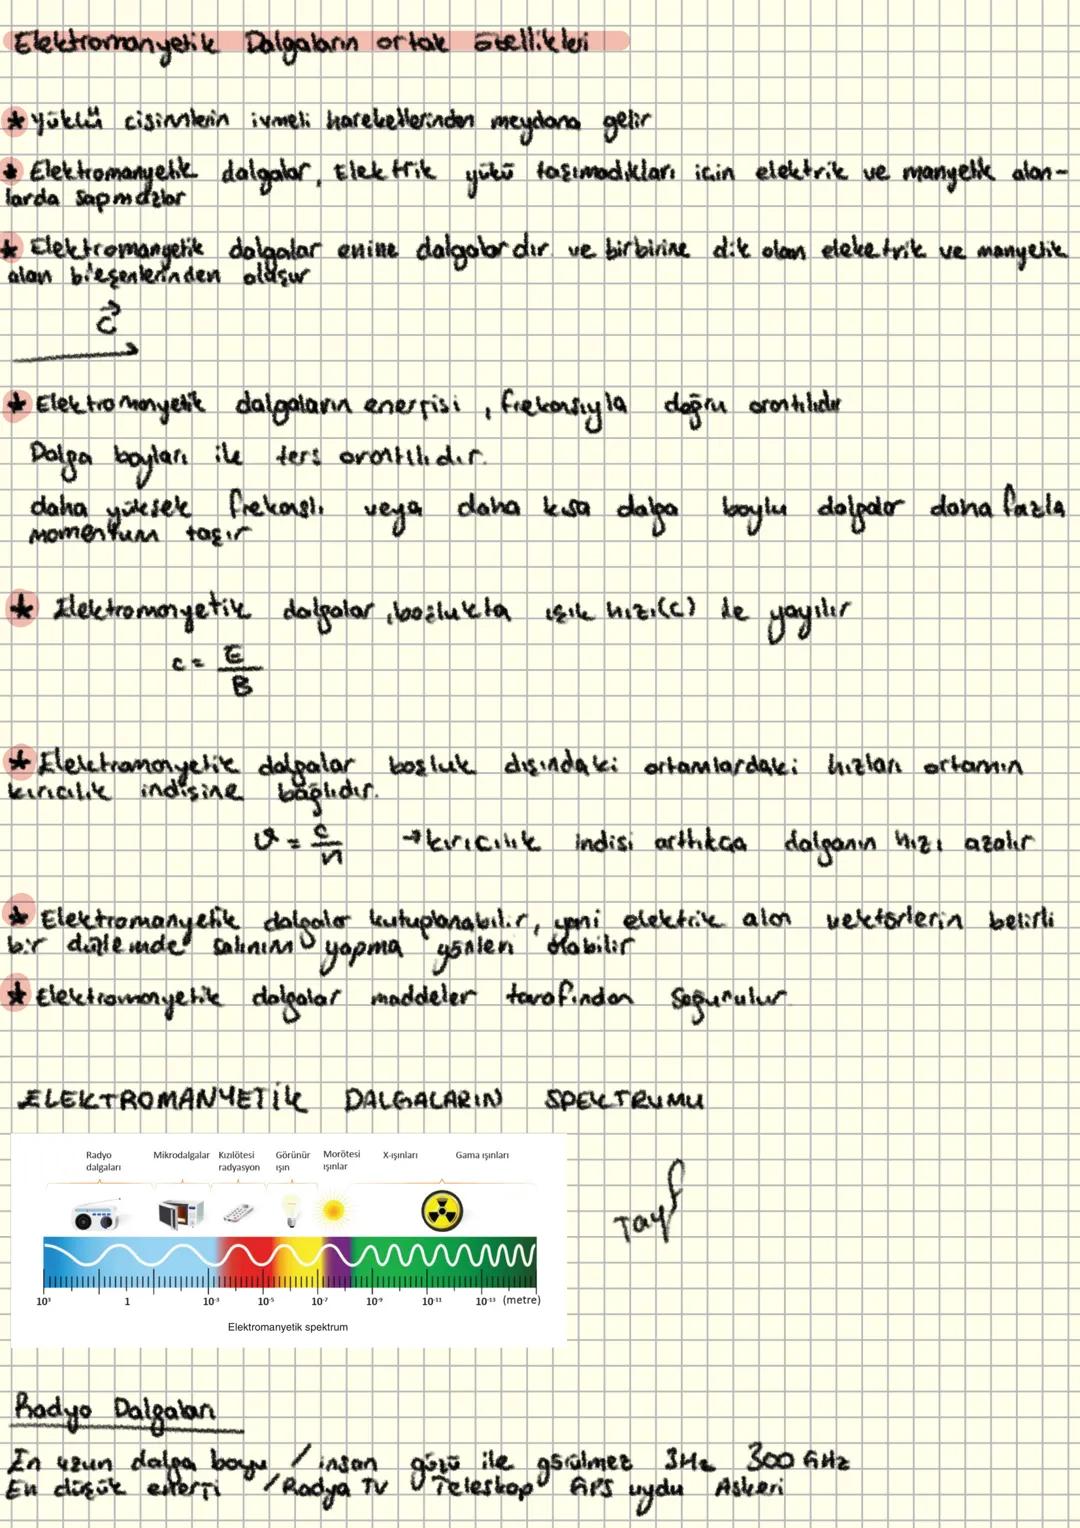 Elektromanyetik Dalgaların ortak özellikleri
* yüklü cisimlerin ivmeli hareketlerinden meydana gelir
* Elektromanyetik dalgalar, Elektrik yükü taşımadıkları için elektrik ve manyetik alan-
larda sapmazlar
* Elektromanyetik dalgalar enine dalgalardır ve birbirine dik olan eleketrik ve manyetik
alan bileşenlerinden oluşur
c
* Elektromanyetik dalgaların enerjisi, frekansıyla doğru orantılıdır
Dalga boyları ile ters orantılıdır.
daha yüksek frekanslı veya daha kısa dalga boylu dalgalar daha fazla
momentum taşır
* Elektromanyetik dalgalar, boşlukta ışık hızı(c) ile yayılır
c = E/B
* Elektromanyetik dalgalar boşluk dışındaki ortamlardaki hızları ortamın
kırıcılık indisine bağlıdır.
v = c/n → kırıcılık indisi arttıkça dalganın hızı azalır
* Elektromanyetik dalgalar kutuplanabilir, yani elektrik alan vektörlerin belirli
bir düzlemde salınım yapma yönleri olabilir
* Elektromanyetik dalgalar maddeler tarafından soğurulur
ELEKTROMANYETİK DALGALARIN SPEKTRUMU
Radyo dalgaları Mikrodalgalar Kızılötesi radyasyon Görünür ışın Morötesi ışınlar X-ışınları Gama ışınları
Tayf
10³ 1 10⁻³ 10⁻⁵ 10⁻⁷ 10⁻⁹ 10⁻¹¹ 10⁻¹³ (metre)
Elektromanyetik spektrum
Radyo Dalgaları
En uzun dalga boyu / insan gözü ile görülmez 3Hz 300 GHz
En düşük enerji / Radyo TV Teleskop GPS uydu Askeri